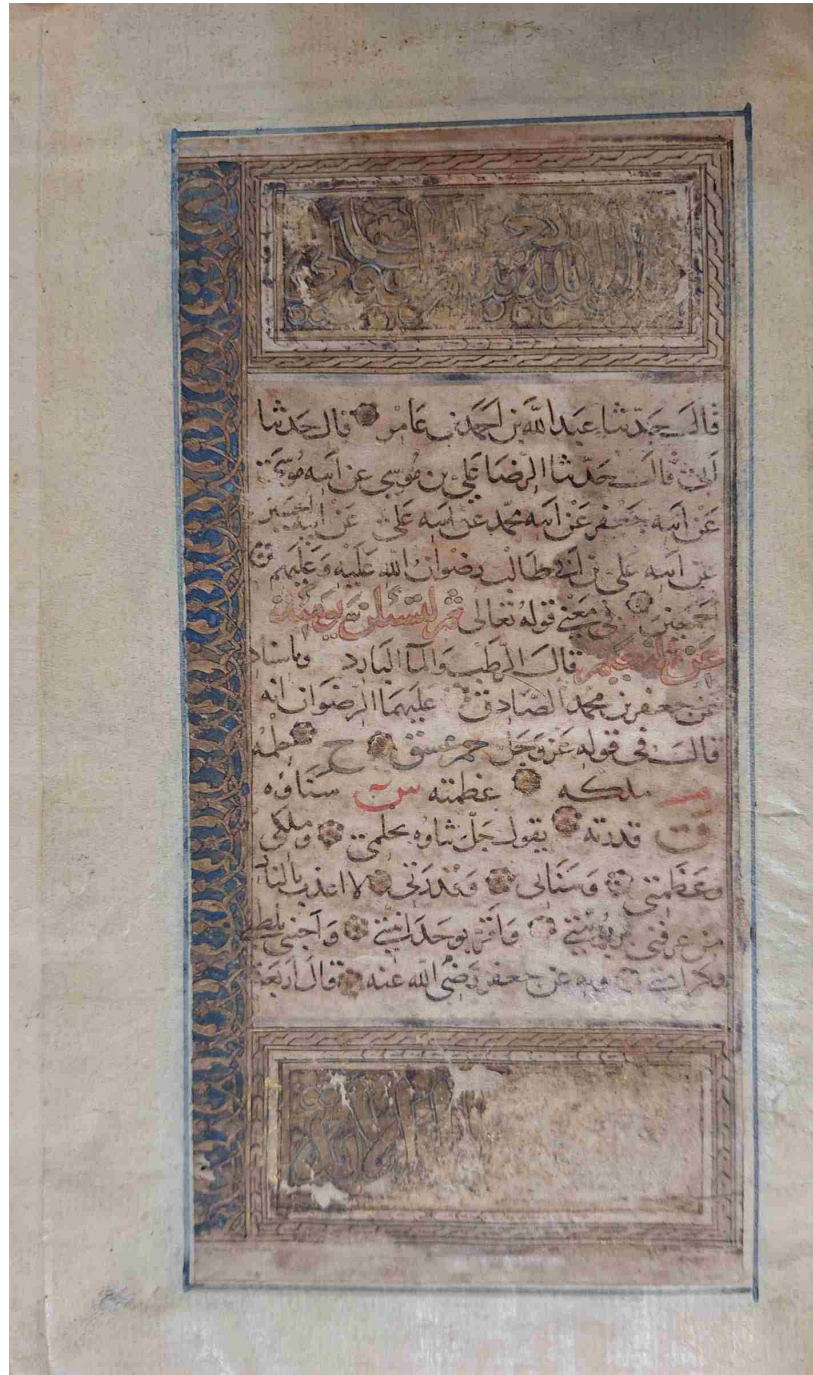 بسم الله الرحمن الرحيم
قال حدثنا عبد الله بن احمد بن عامر قال حدثنا
ابى قال حدثنا الرضا على بن موسى عن ابيه موسى
عن ابيه جعفر عن ابيه محمد عن ابيه على عن ابيه الحسين
عن ابيه على بن ابى طالب رضوان الله عليه وعليهم
اجمعين فى معنى قوله تعالى ثم لتسئلن يومئذ
عن النعيم قال الرطب والمآ البارد وباسناده
عن جعفر بن محمد الصادق عليهما الرضوان انه
قال فى قوله عز وجل حم عسق ح حلمه
م ملكه عظمته س سناوه
ق قدرته يقول جل ثناوه بحلمى وملكى
وعظمتى وسنائى وقدرتى لا اعذب بالنار
من عرفنى بربوبيتى واقر بوحدانيتى
وكرامتى وبه عن جعفر رضى الله عنه قال اربعة